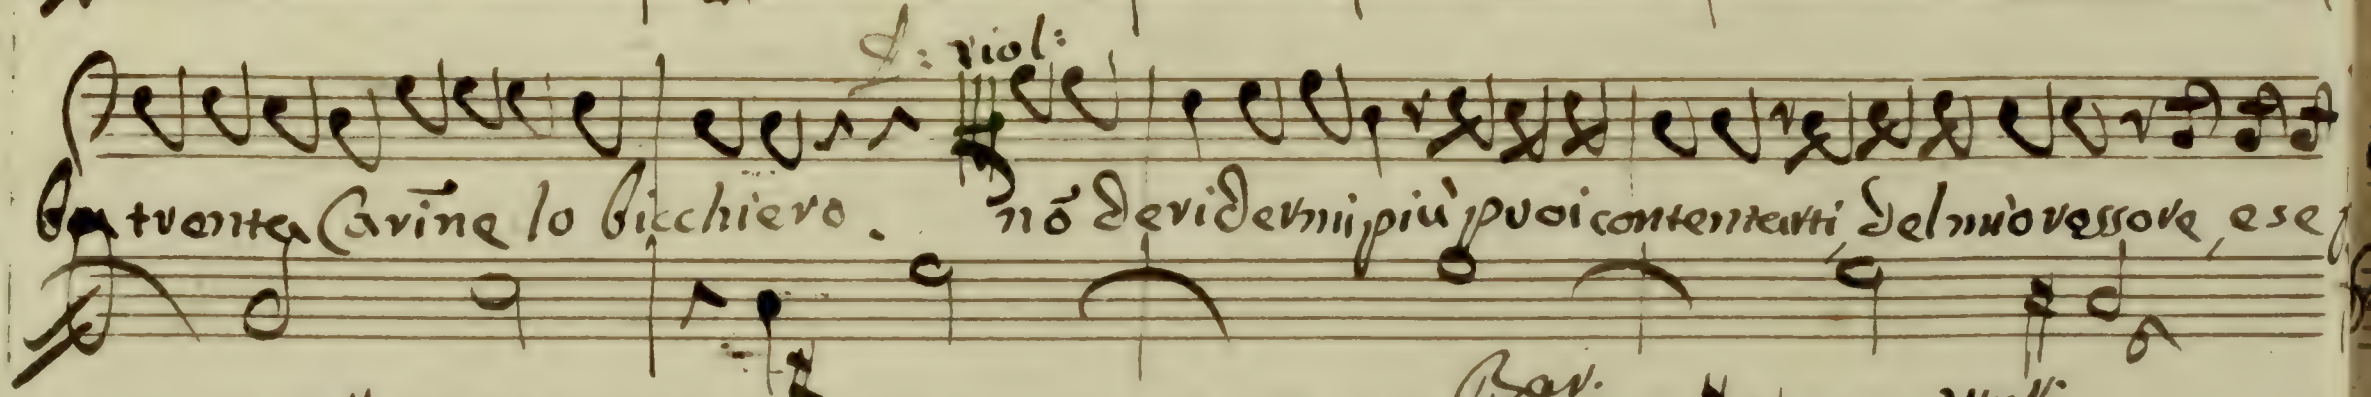 D: viol:
trenta Carine lo bicchiero. nō deridermi più puoi contentarti del mio rossore, e se
Bar.